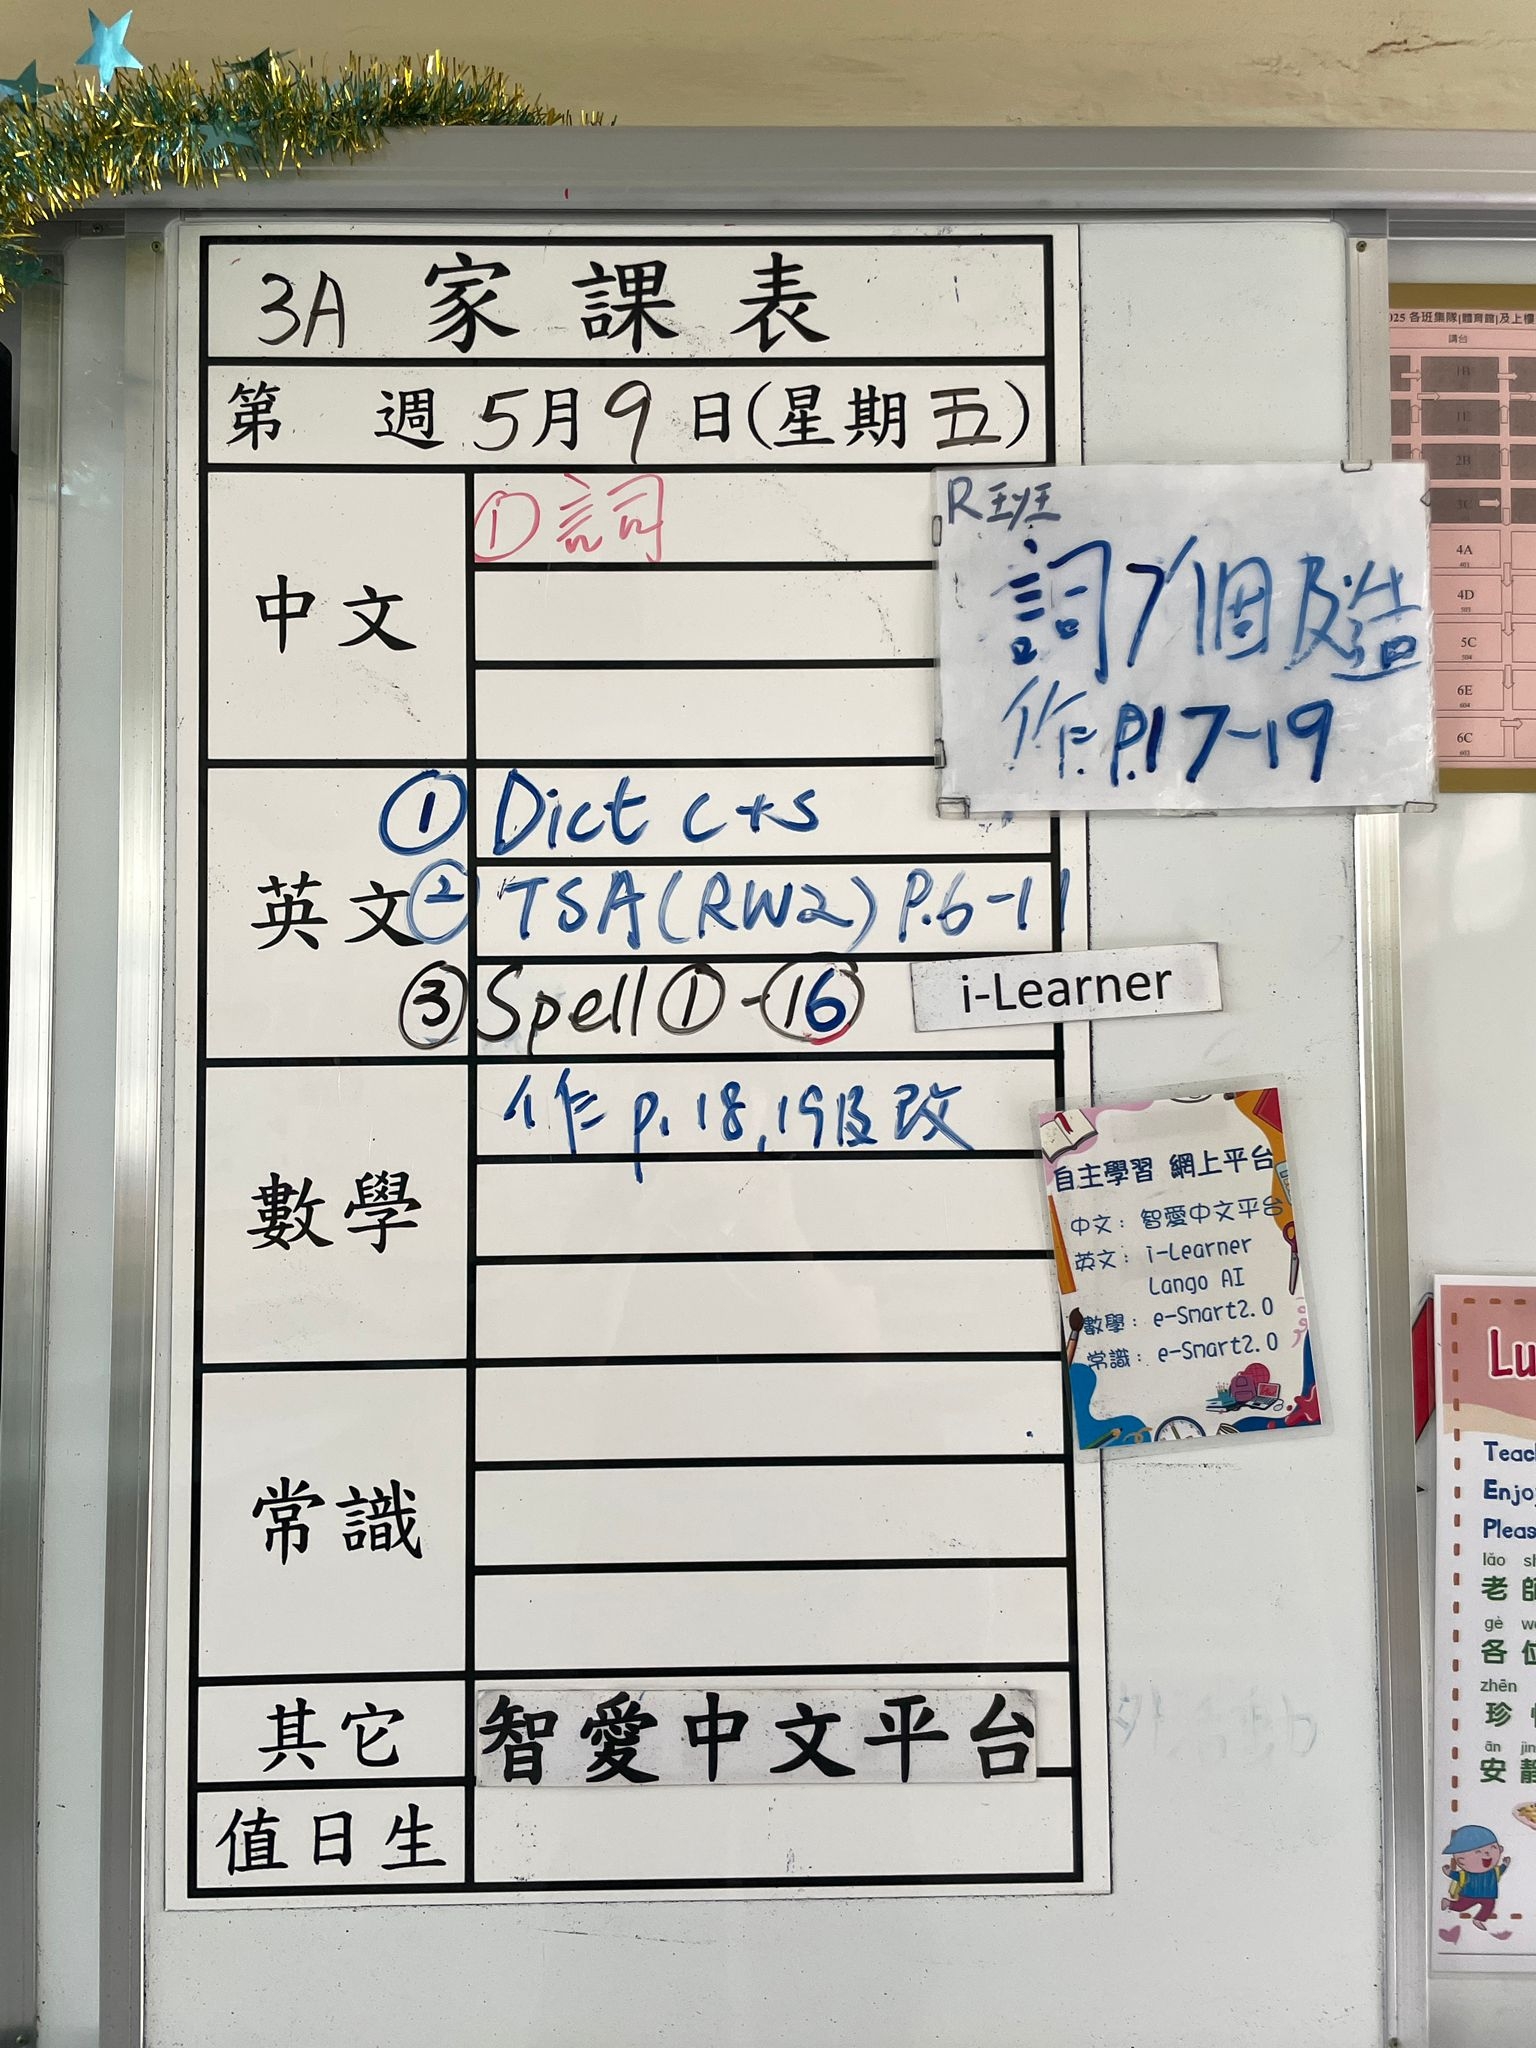 3A 家課表
第 週 5月9日(星期五)
中文
① 詞
R班
詞7個及造
作 P.17-19
英文
① Dict c+s
② TSA(RW2) P.6-11
③ Spell ①-⑯
i-Learner
數學
作 p.18,19及改
自主學習 網上平台
中文：智愛中文平台
英文：i-Learner
Lango AI
數學：e-Smart2.0
常識：e-Smart2.0
常識
其它
智愛中文平台
值日生
025 各班集隊|體育館|及上樓
講台
1B
1E
2B
3C
4A
4D
5C
6E
6C
Lu
Teac
Enjo
Pleas
lǎo
老
gè
各
zhēn
珍
ān
安